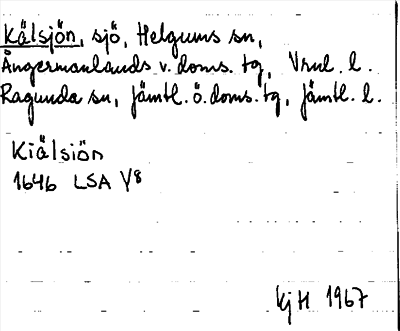 Kälsjön, sjö, Helgums sn,
Ångermanlands v. doms. tg, Vrnl. l.
Ragunda sn, Jämtl. ö. doms. tg, Jämtl. l.
Kiälsiön
1646 LSA V8
KjH 1967